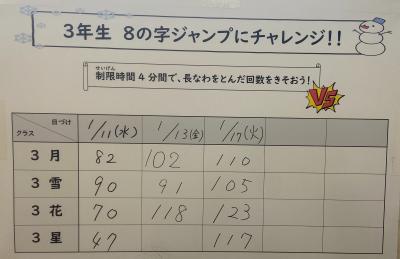 3年生 8の字ジャンプにチャレンジ!!
せいげん
制限時間4分間で、長なわをとんだ回数をきそおう!
VS
日づけ クラス 1/11(水) 1/13(金) 1/17(火)
3 月 82 102 110
3 雪 90 91 105
3 花 70 118 123
3 星 47 117